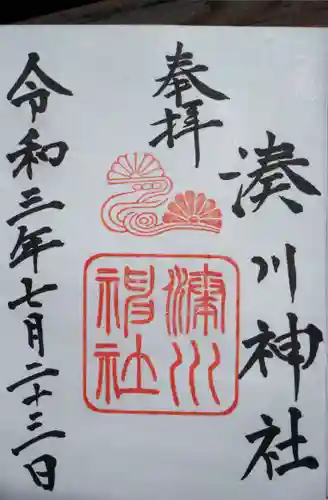 奉拝
湊川神社
湊川
神社
令和三年七月二十三日